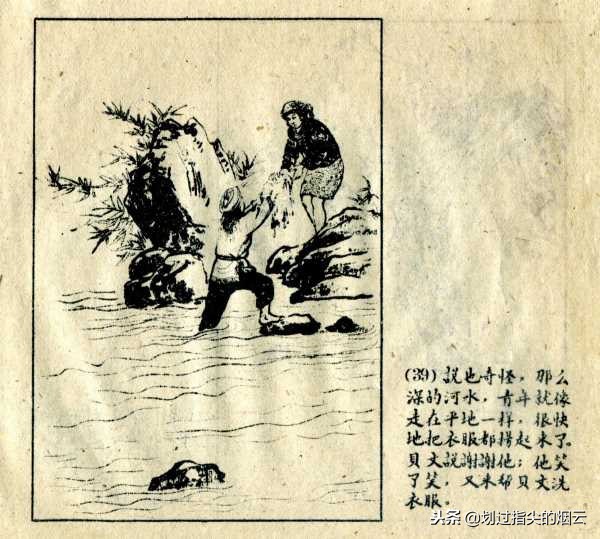 (39) 說也奇怪，那么
深的河水，青年就像
走在平地一样，很快
地把衣服都撈起来了。
貝文說謝謝他；他笑
了笑，又来帮貝文洗
衣服。
头条 @划过指尖的烟云